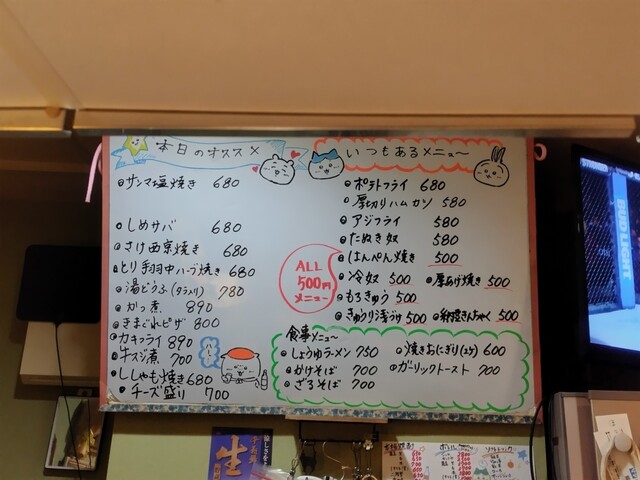 本日のオススメ
サンマ塩焼き 680
しめサバ 680
さけ西京焼き 680
とり手羽中ハーブ焼き 680
湯どうふ(タラ入り) 780
かっ煮 890
きまぐれピザ 800
カキフライ 890
牛スジ煮 700
ししゃも焼き 680
チーズ盛り 700
いつもあるメニュ〜
ポテトフライ 680
厚切りハムカツ 580
アジフライ 580
たぬき奴 580
はんぺん焼き 500
ALL
500円
メニュー
冷奴 500 厚あげ焼き 500
もろきゅう 500
きゅうり浅づけ 500 500
食事メニュー
しょうゆラーメン 750 焼きおにぎり(2ケ) 600
かけそば 700 ガーリックトースト 700
ざるそば 700
BUD LIGHT
生